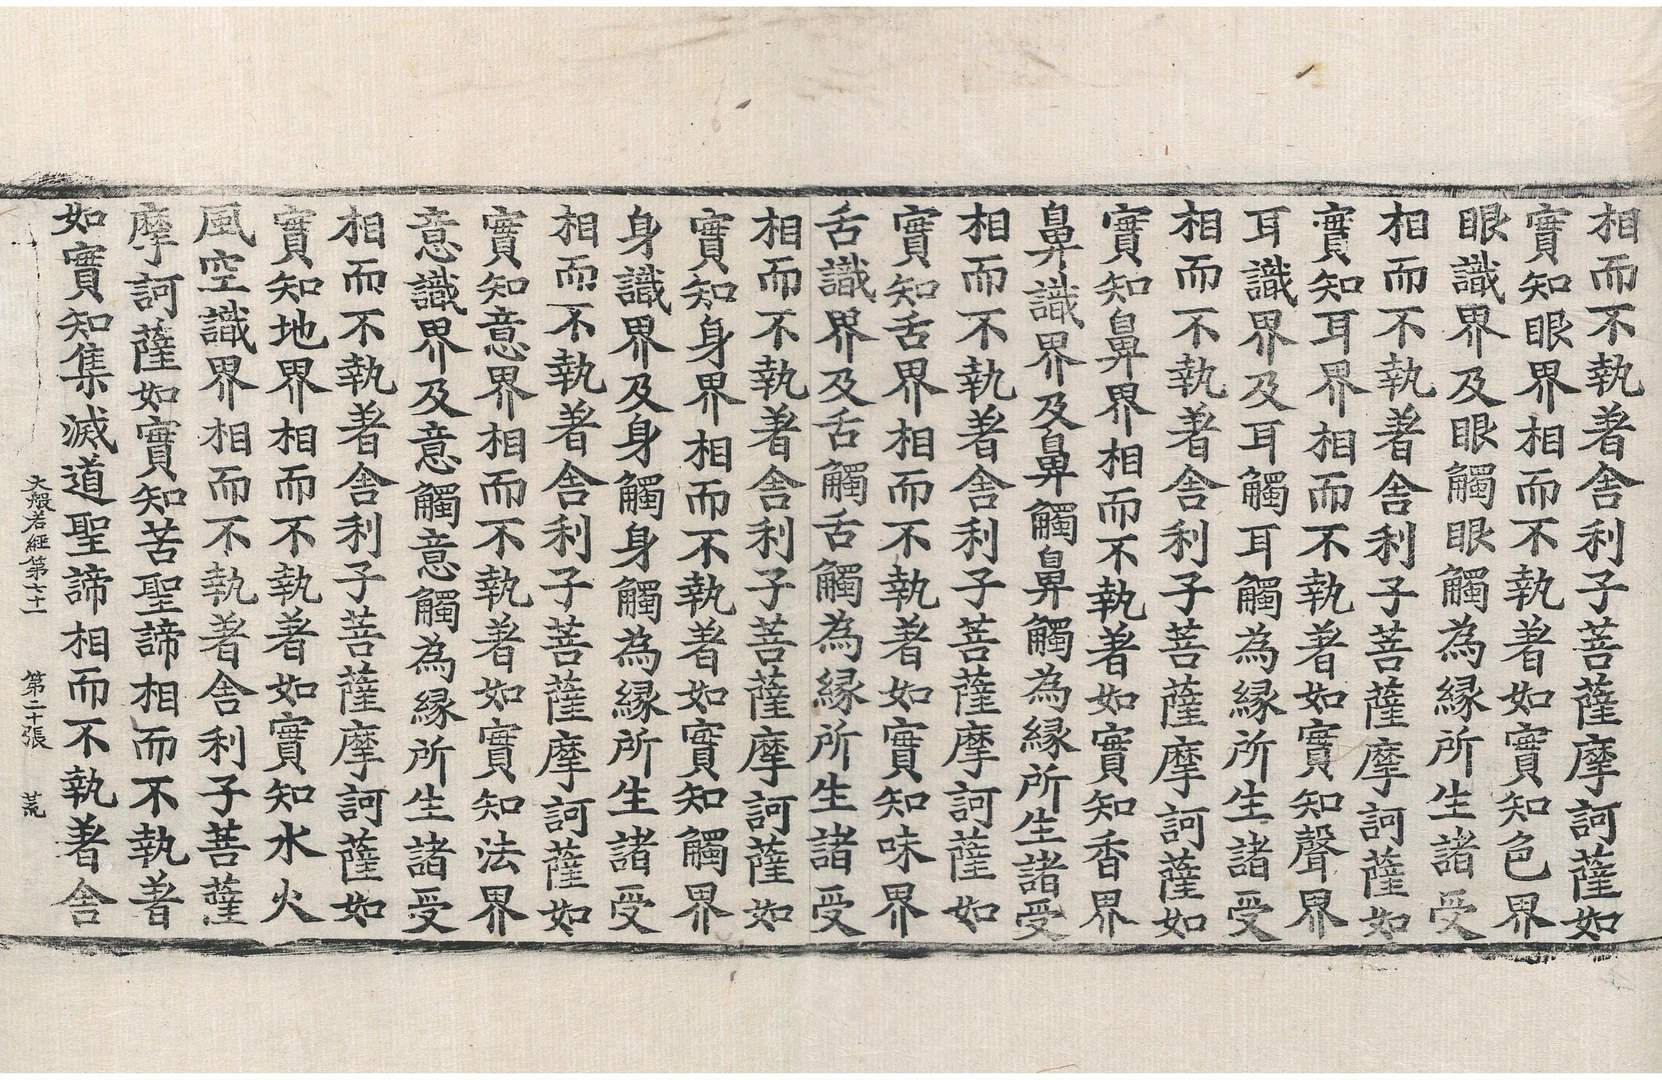 相而不執著舎利子菩薩摩訶薩如
實知眼界相而不執著如實知色界
眼識界及眼觸眼觸為縁所生諸受
相而不執著舎利子菩薩摩訶薩如
實知耳界相而不執著如實知聲界
耳識界及耳觸耳觸為縁所生諸受
相而不執著舎利子菩薩摩訶薩如
實知鼻界相而不執著如實知香界
鼻識界及鼻觸鼻觸為縁所生諸受
相而不執著舎利子菩薩摩訶薩如
實知舌界相而不執著如實知味界
舌識界及舌觸舌觸為縁所生諸受
相而不執著舎利子菩薩摩訶薩如
實知身界相而不執著如實知觸界
身識界及身觸身觸為縁所生諸受
相而不執著舎利子菩薩摩訶薩如
實知意界相而不執著如實知法界
意識界及意觸意觸為縁所生諸受
相而不執著舎利子菩薩摩訶薩如
實知地界相而不執著如實知水火
風空識界相而不執著舎利子菩薩
摩訶薩如實知苦聖諦相而不執著
如實知集滅道聖諦相而不執著舎
大般若經第七十一 第二十張 荒